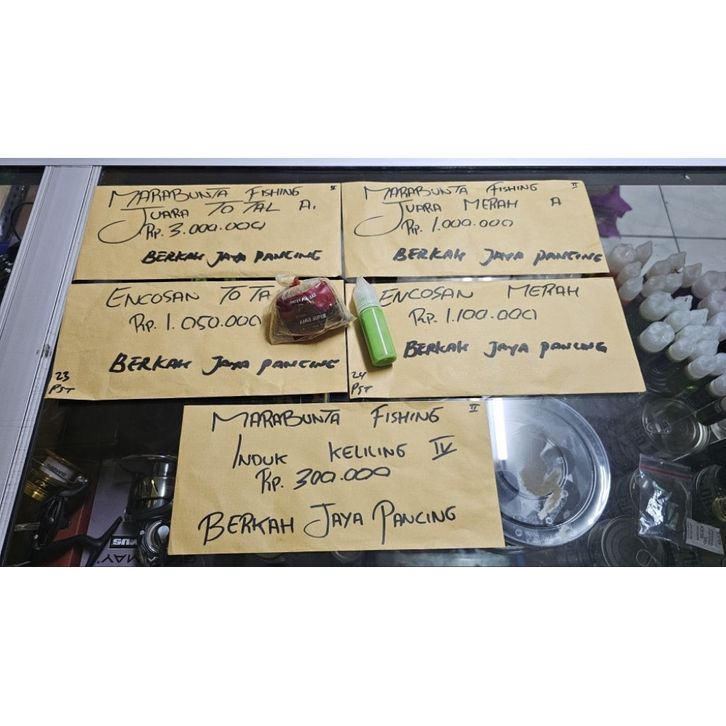 MARABUNTA FISHING II
JUARA TO TAL A.
Rp. 3.000.000
BERKAH JAYA PANCING
MARABUNTA FISHING II
JUARA MERAH A
Rp. 1.000.000
BERKAH JAYA PANCING
ENCOSAN TO TA
Rp. 1.050.000
BERKAH JAYA PANCING
23
PST
ENCOSAN MERAH
Rp. 1.100.000
BERKAH JAYA PANCING
24
PST
MARABUNTA FISHING II
INDUK KELILING IV
Rp. 300.000
BERKAH JAYA PANCING